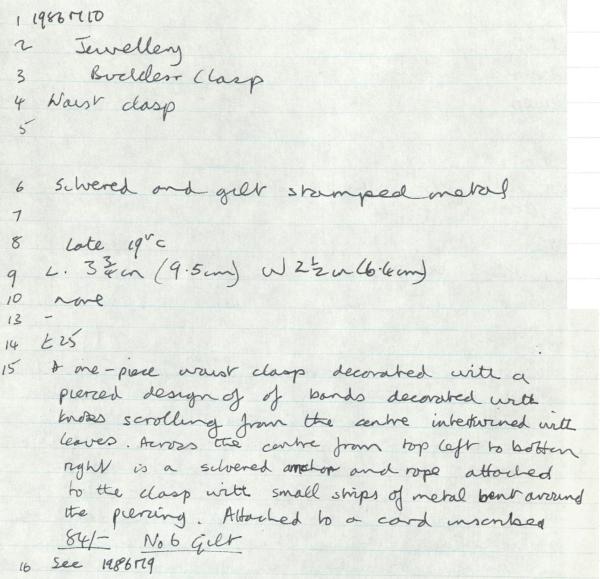 1 1986M10
2 Jewellery
3 Buckles + Clasp
4 Waist clasp
5
6 Silvered and gilt stamped metal
7
8 Late 19th c
9 L. 3 3/4 in (9.5cm) W 2 1/2 in (6.4cm)
10 none
13 -
14 £25
15 A one-piece waist clasp decorated with a
pierced design of of bands decorated with
knobs scrolling from the centre intertwined with
leaves. Across the centre from top left to bottom
right is a silvered anchor and rope attached
to the clasp with small strips of metal bent around
the piercing. Attached to a card inscribed
84/- No 6 Gilt
16 See 1986M9